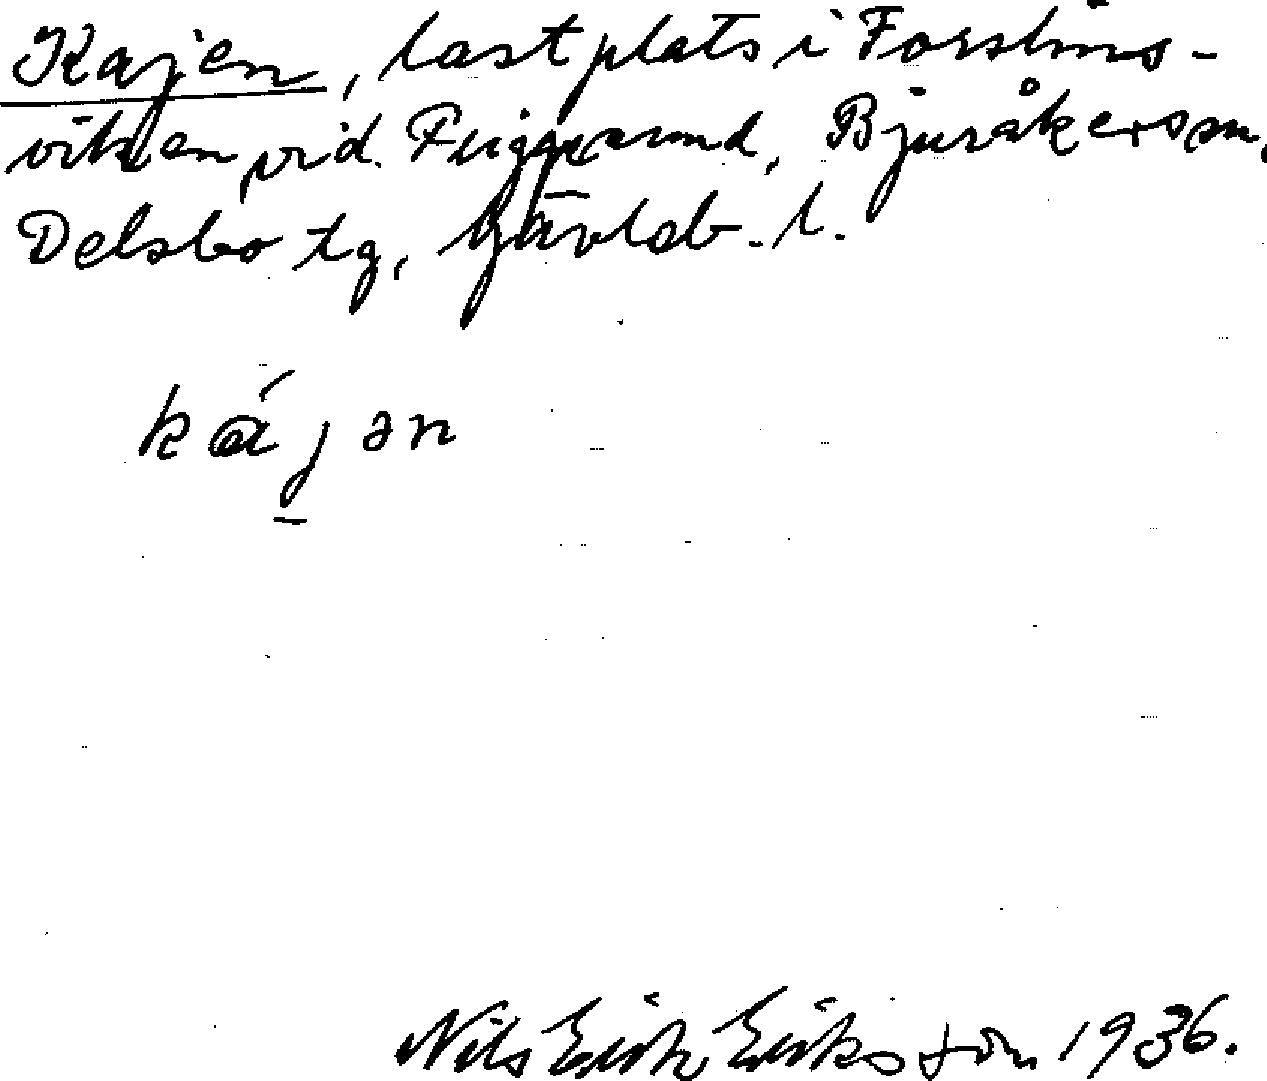 Kajen, lastplats i Forslins-
viken vid Friggesund, Bjuråkers sn,
Delsbo tg, Gävleb. l.
kájən
Nils Erik Eriksson 1936.